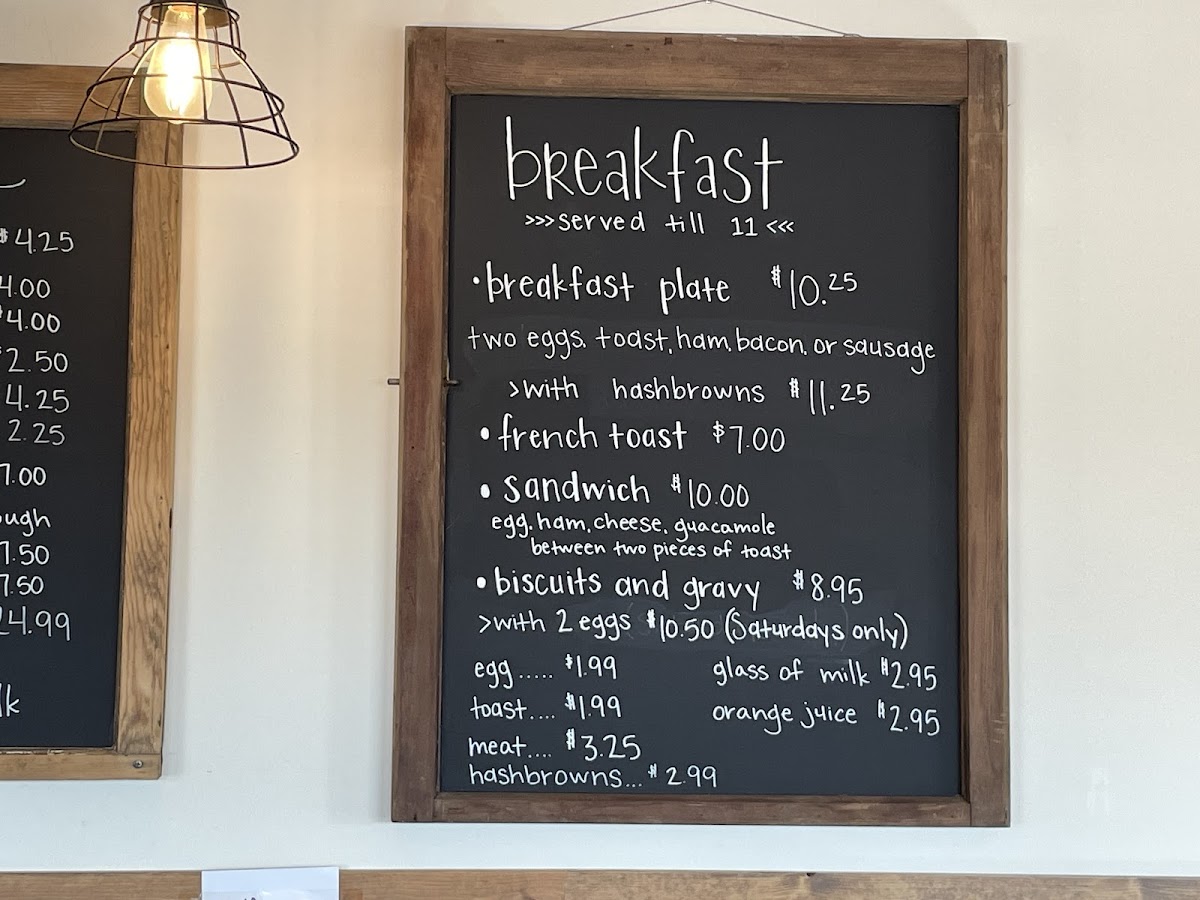 $4.25
4.00
$4.00
2.50
4.25
2.25
7.00
ough
7.50
7.50
24.99
lk
breakfast
>>>served till 11<<<
•breakfast plate $10.25
two eggs, toast, ham, bacon, or sausage
>with hashbrowns $11.25
• french toast $7.00
• sandwich $10.00
egg, ham, cheese, guacamole
between two pieces of toast
• biscuits and gravy $8.95
>with 2 eggs $10.50 (Saturdays only)
egg..... $1.99
toast.... $1.99
meat.... $3.25
hashbrowns... $2.99
glass of milk $2.95
orange juice $2.95